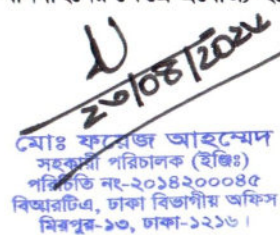 ২৩/০৪/২০২৬
মোঃ ফয়েজ আহম্মেদ
সহকারী পরিচালক (ইঞ্জিঃ)
পরিচিতি নং-২০১৪২০০০৪৫
বিআরটিএ, ঢাকা বিভাগীয় অফিস
মিরপুর-১৩, ঢাকা-১২১৬।